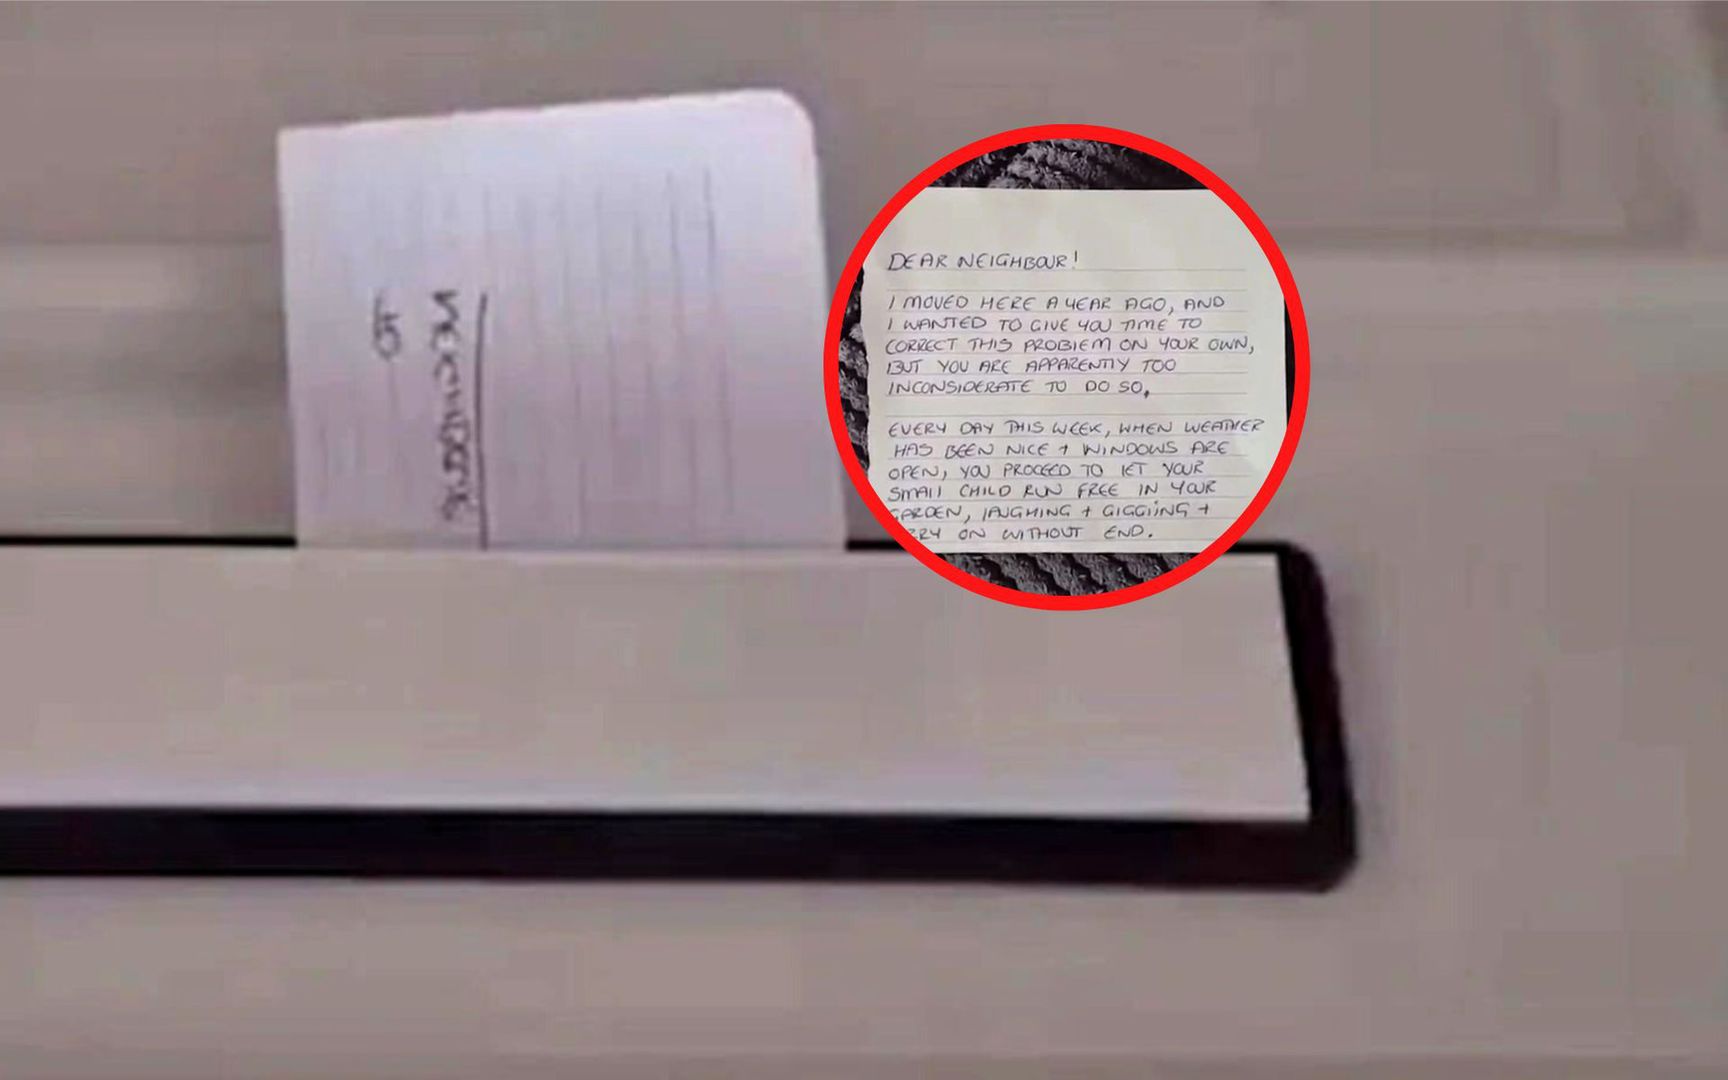 TO
DEAR NEIGHBOUR!
I MOVED HERE A YEAR AGO, AND
I WANTED TO GIVE YOU TIME TO
CORRECT THIS PROBLEM ON YOUR OWN,
BUT YOU ARE APPARENTLY TOO
INCONSIDERATE TO DO SO.
EVERY DAY THIS WEEK, WHEN WEATHER
HAS BEEN NICE + WINDOWS ARE
OPEN, YOU PROCEED TO LET YOUR
SMALL CHILD RUN FREE IN YOUR
GARDEN, LAUGHING + GIGGLING +
RRY ON WITHOUT END.